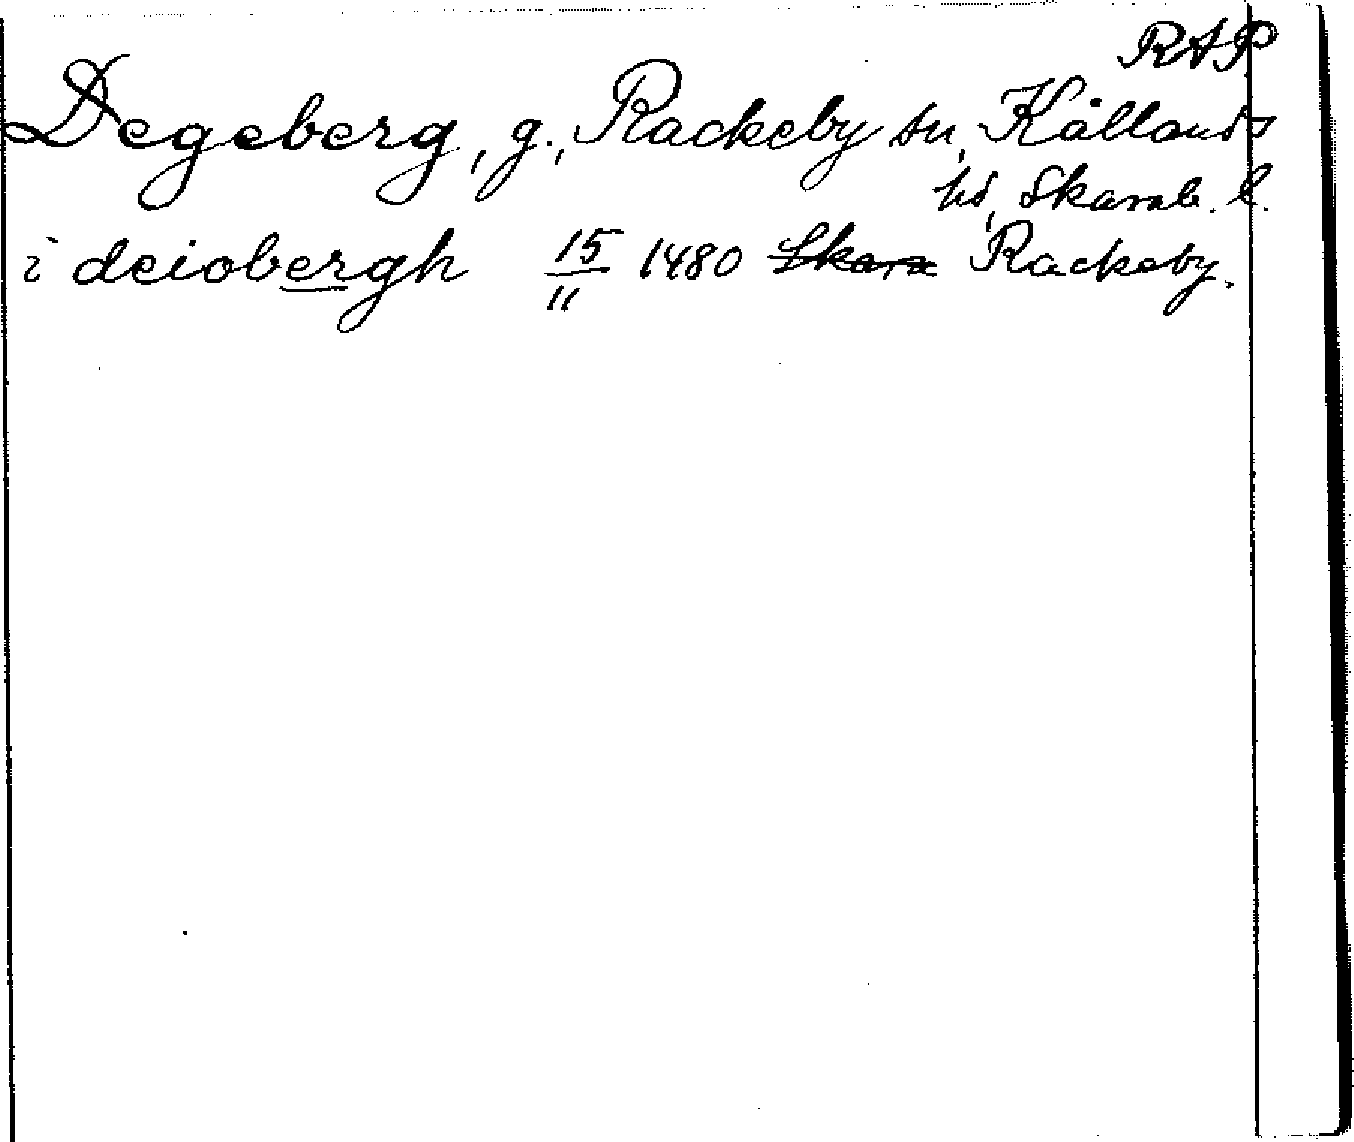 RAP
Degeberg, g., Rackeby sn, Kållands
hd, Skarab. l.
i deiobergh 15/11 1480 Skara Rackeby.